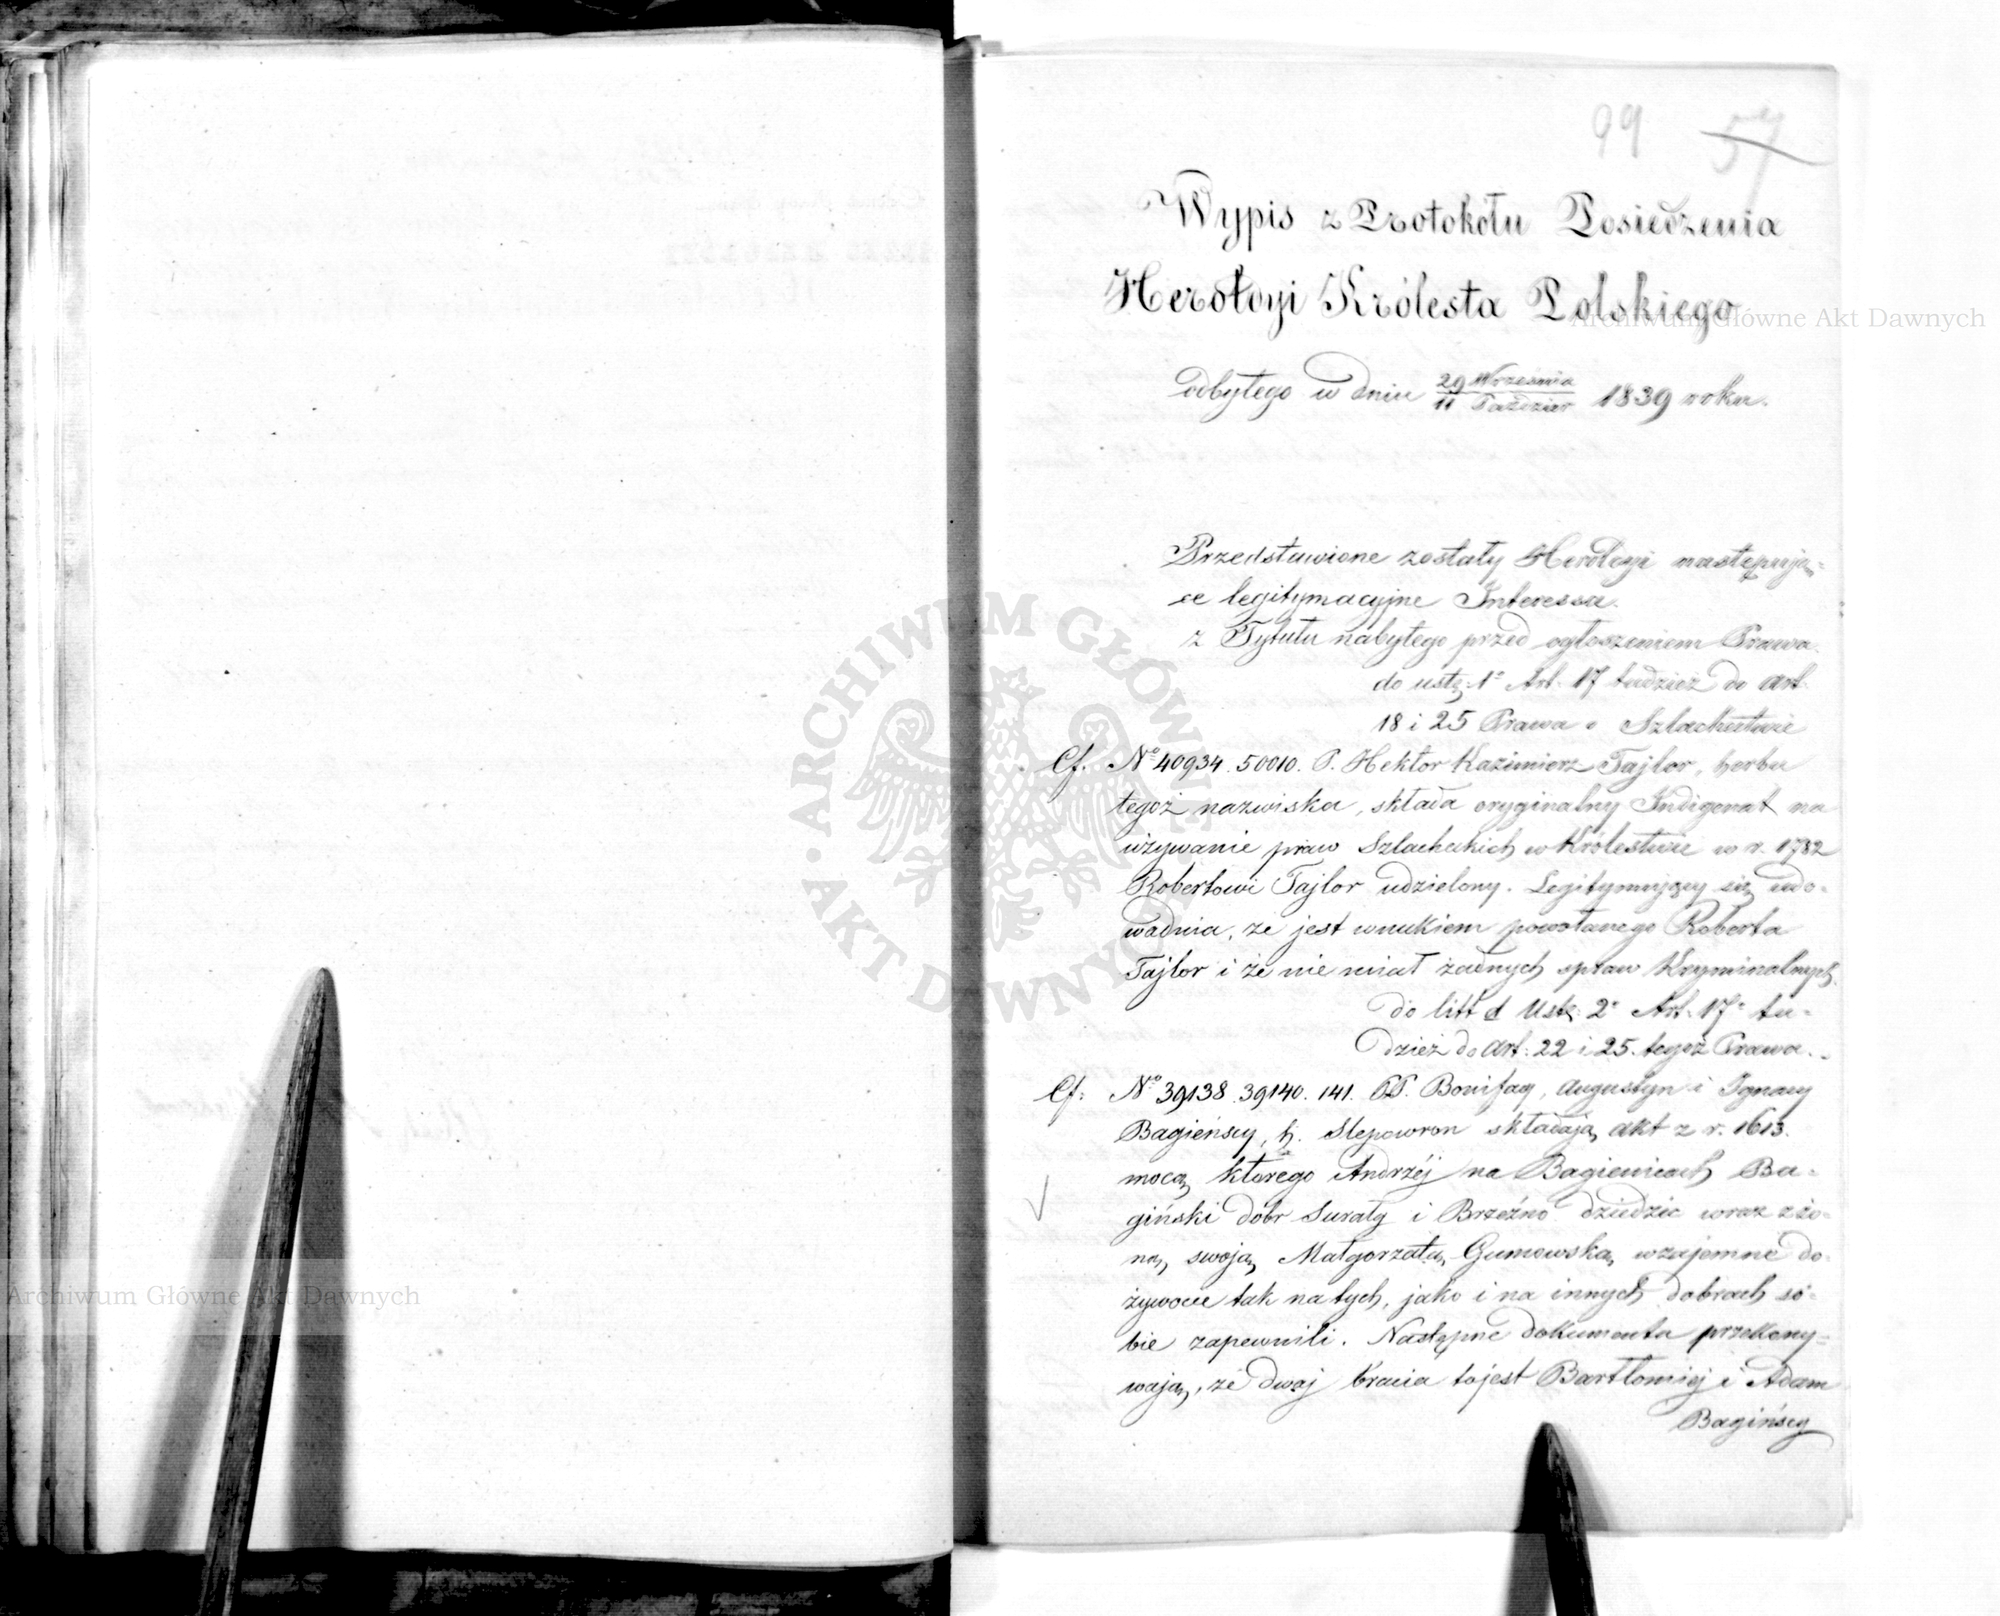 99 57
Wypis z Protokółu Posiedzenia
Herołdyi Królesta Polskiego
odbyłego w dniu 29 Września / 11 Paździer 1839 roku.
Przedstawione zostały Herołdyi następują-
ce legitymacyjne Interessa.
z Tytułu nabytego przed ogłoszeniem Prawa.
do ustę: 1° Art. 17 tudzież do Art.
18 i 25 Prawa o Szlachectwie
Cf. N° 40934. 50010. P. Hektor Kazimierz Tajlor, herbu
tegoż nazwiska, składa oryginalny Indigenat na
używanie praw Szlacheckich w Królestwie w r. 1782
Robertowi Tajlor udzielony. Legitymujący się udo-
wadnia, że jest wnukiem powołanego Roberta
Tajlor i że nie miał żadnych spraw Kryminalnych.
do litt d Ustę: 2° Art. 17° tu-
dzież do Art: 22 i 25. tegoż Prawa.
Cf: N° 39138. 39140. 141. PP. Bonifacy, Augustyn i Ignacy
Bagieńscy, h. Slepowron składają akt z r. 1613.
mocą którego Andrzéj na Bagienicach Ba-
giński dobr Suraty i Brzeźno dziedzic wraz z żo-
ną swoją Małgorzatą Gumowską wzajemne do-
żywocie tak na tych, jako i na innych dobrach so-
bie zapewnili. Następne dokumenta przekony-
wają, że dwaj bracia to jest Bartłomiéj i Adam
Bagińscy
ARCHIWUM GŁÓWNE AKT DAWNYCH
Archiwum Główne Akt Dawnych
Archiwum Główne Akt Dawnych